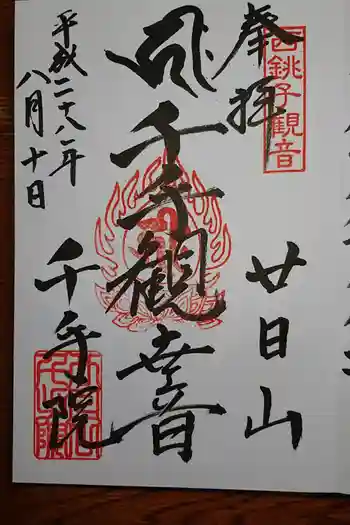 奉拝
西銚子観音
廿日山
千手観世音
平成二十八年
八月十日
千手院